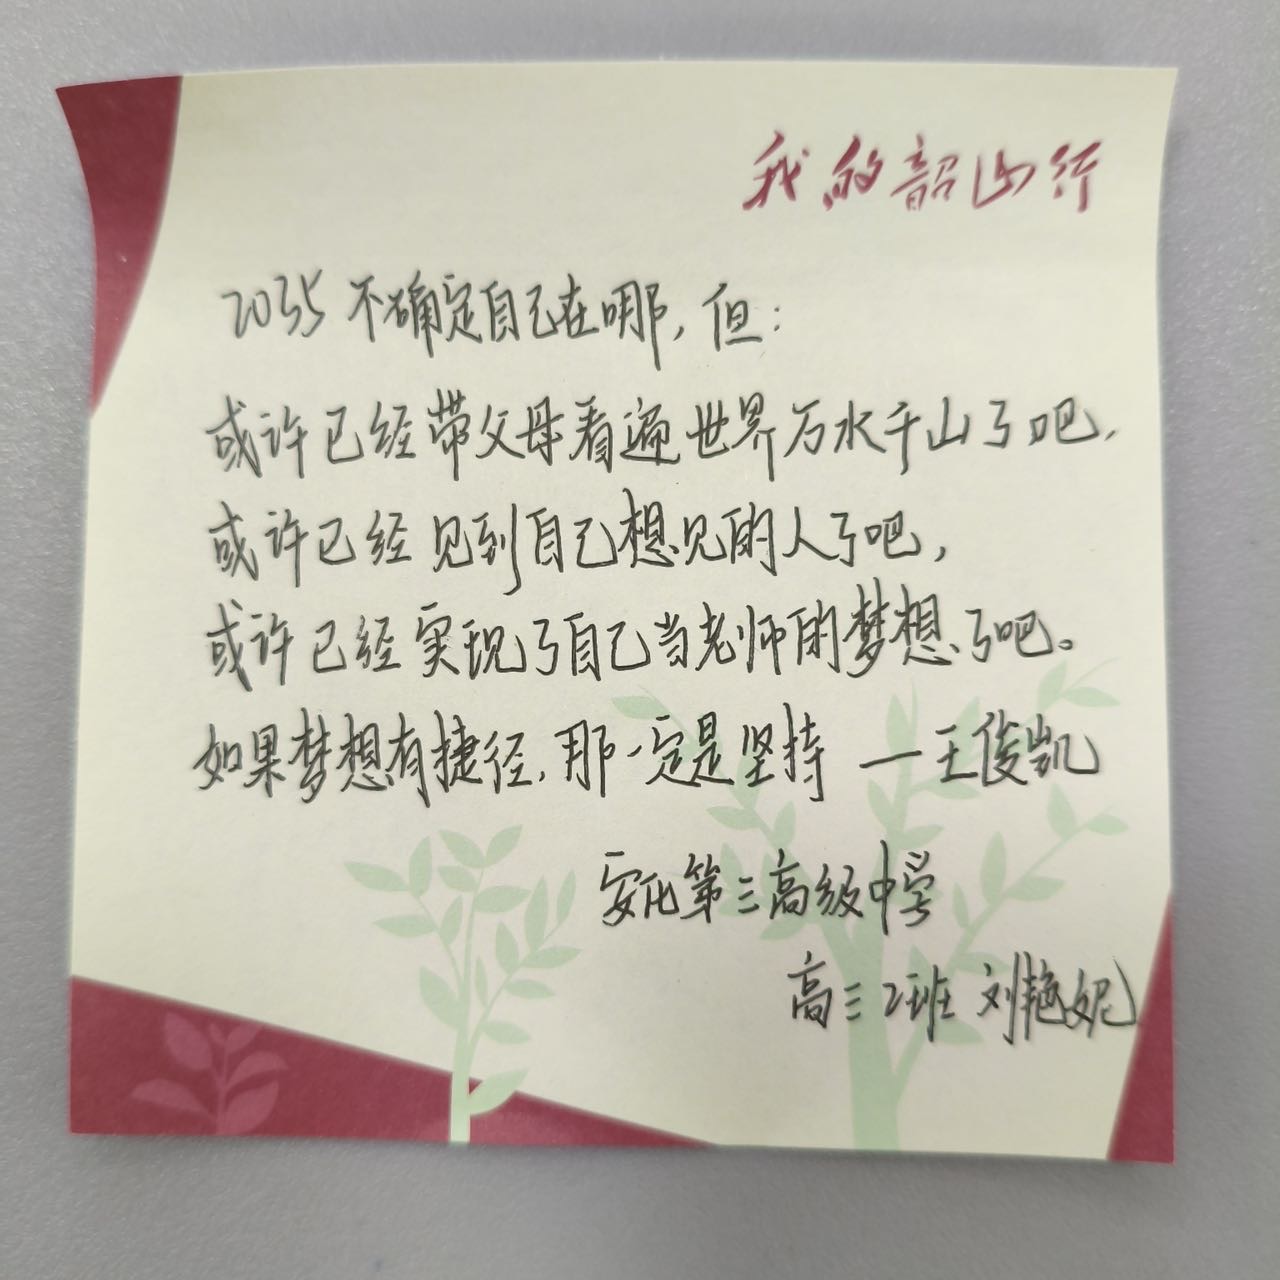 我的韶山行
2035不确定自己在哪,但:
或许已经带父母看遍世界万水千山了吧,
或许已经见到自己想见的人了吧,
或许已经实现了自己当老师的梦想了吧。
如果梦想有捷径,那一定是坚持 —王俊凯
安化第三高级中学
高三2班 刘艳妮